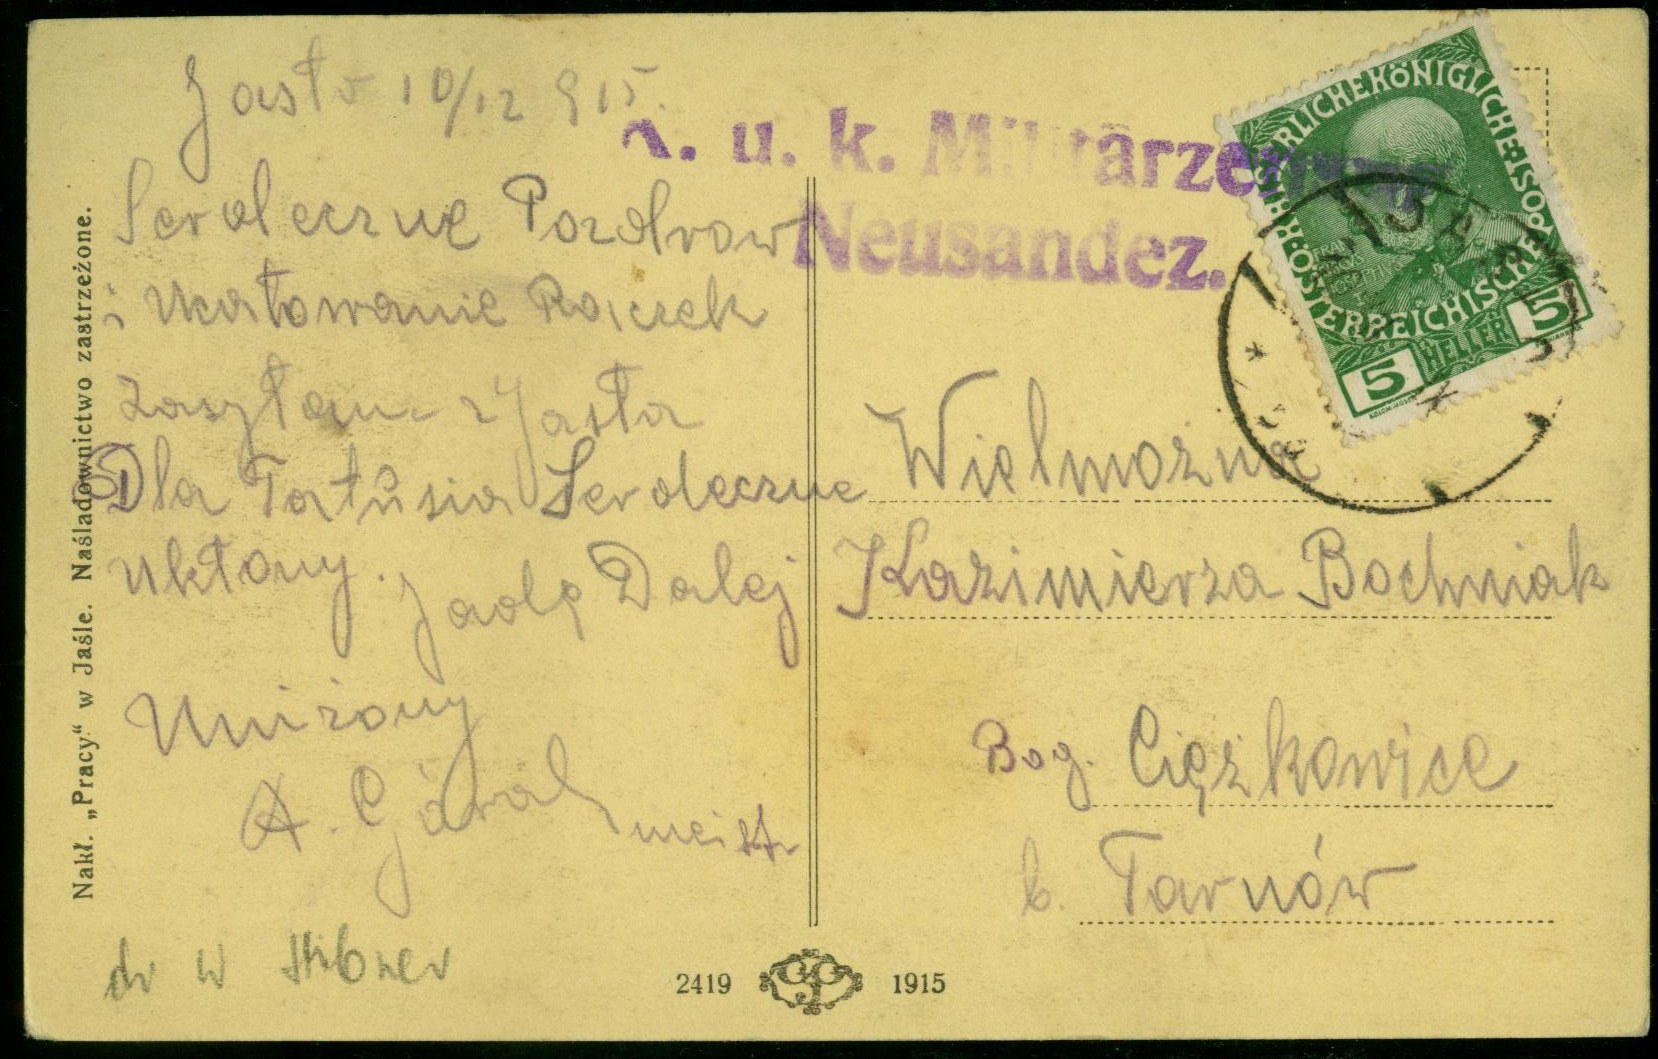 Jasło 10/12 915.
Serdeczne Pozdrow
i Ucałowanie Rączek
zasyłam z Jasła
Dla Tatusia Serdeczne
Ukłony. Jadę Dalej
Uniżony
A. Góral
dr W
Nakł. „Pracy" w Jaśle. Naśladownictwo zastrzeżone.
K. u. k. Militärzensur
Neusandez.
KAISERLICHE KÖNIGLICHE ÖSTERREICHISCHE POST
5 HELLER 5
Wielmożna
Kazimierza Bochniak
Bog. Ciężkowice
b. Tarnów
2419 1915